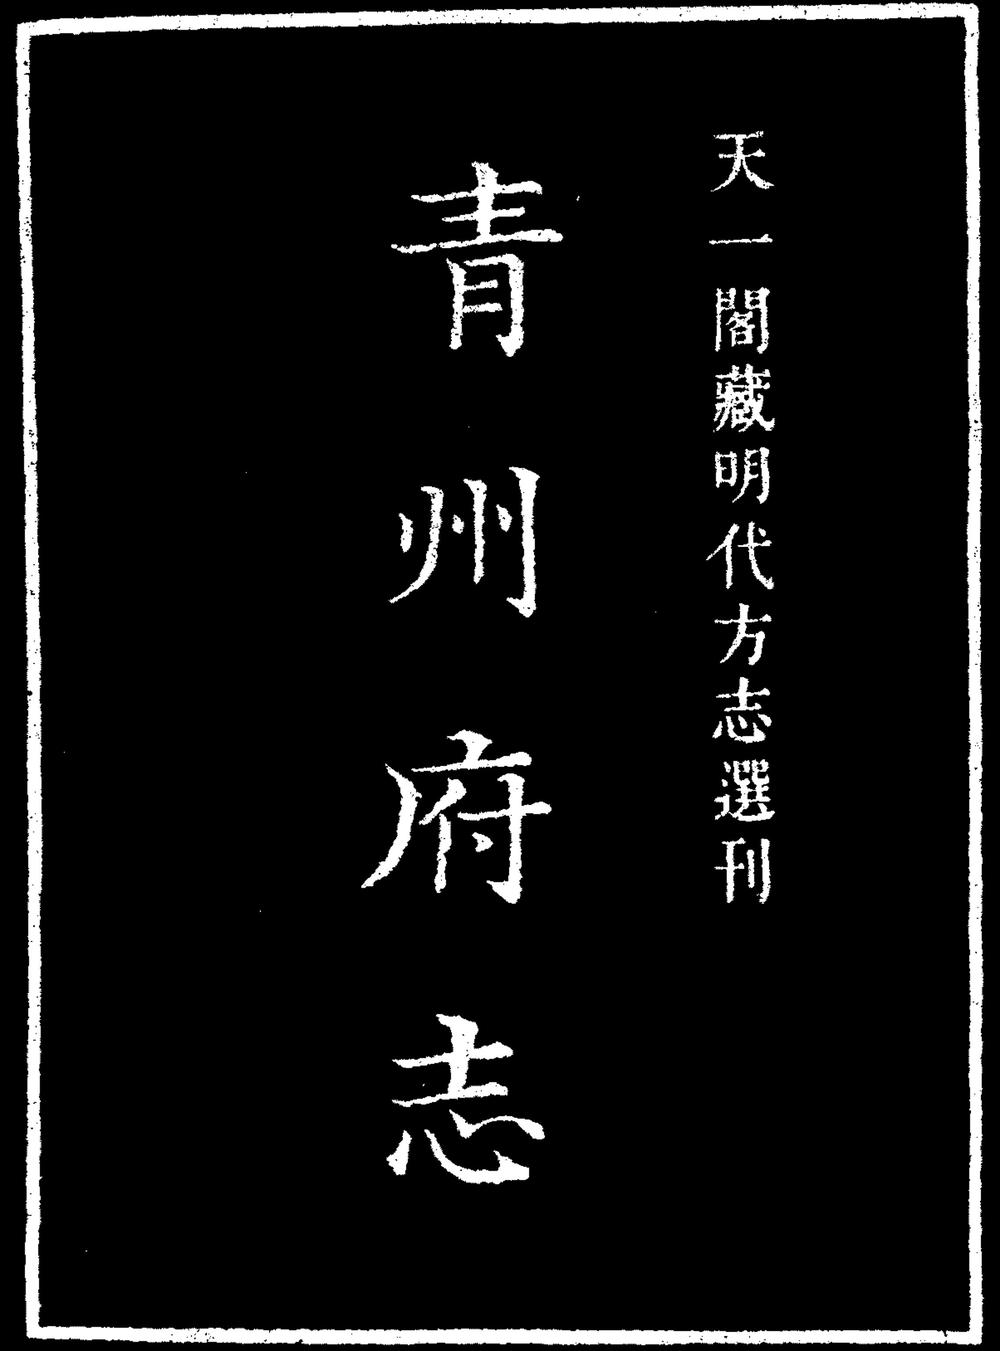 天一閣藏明代方志選刊
青州府志